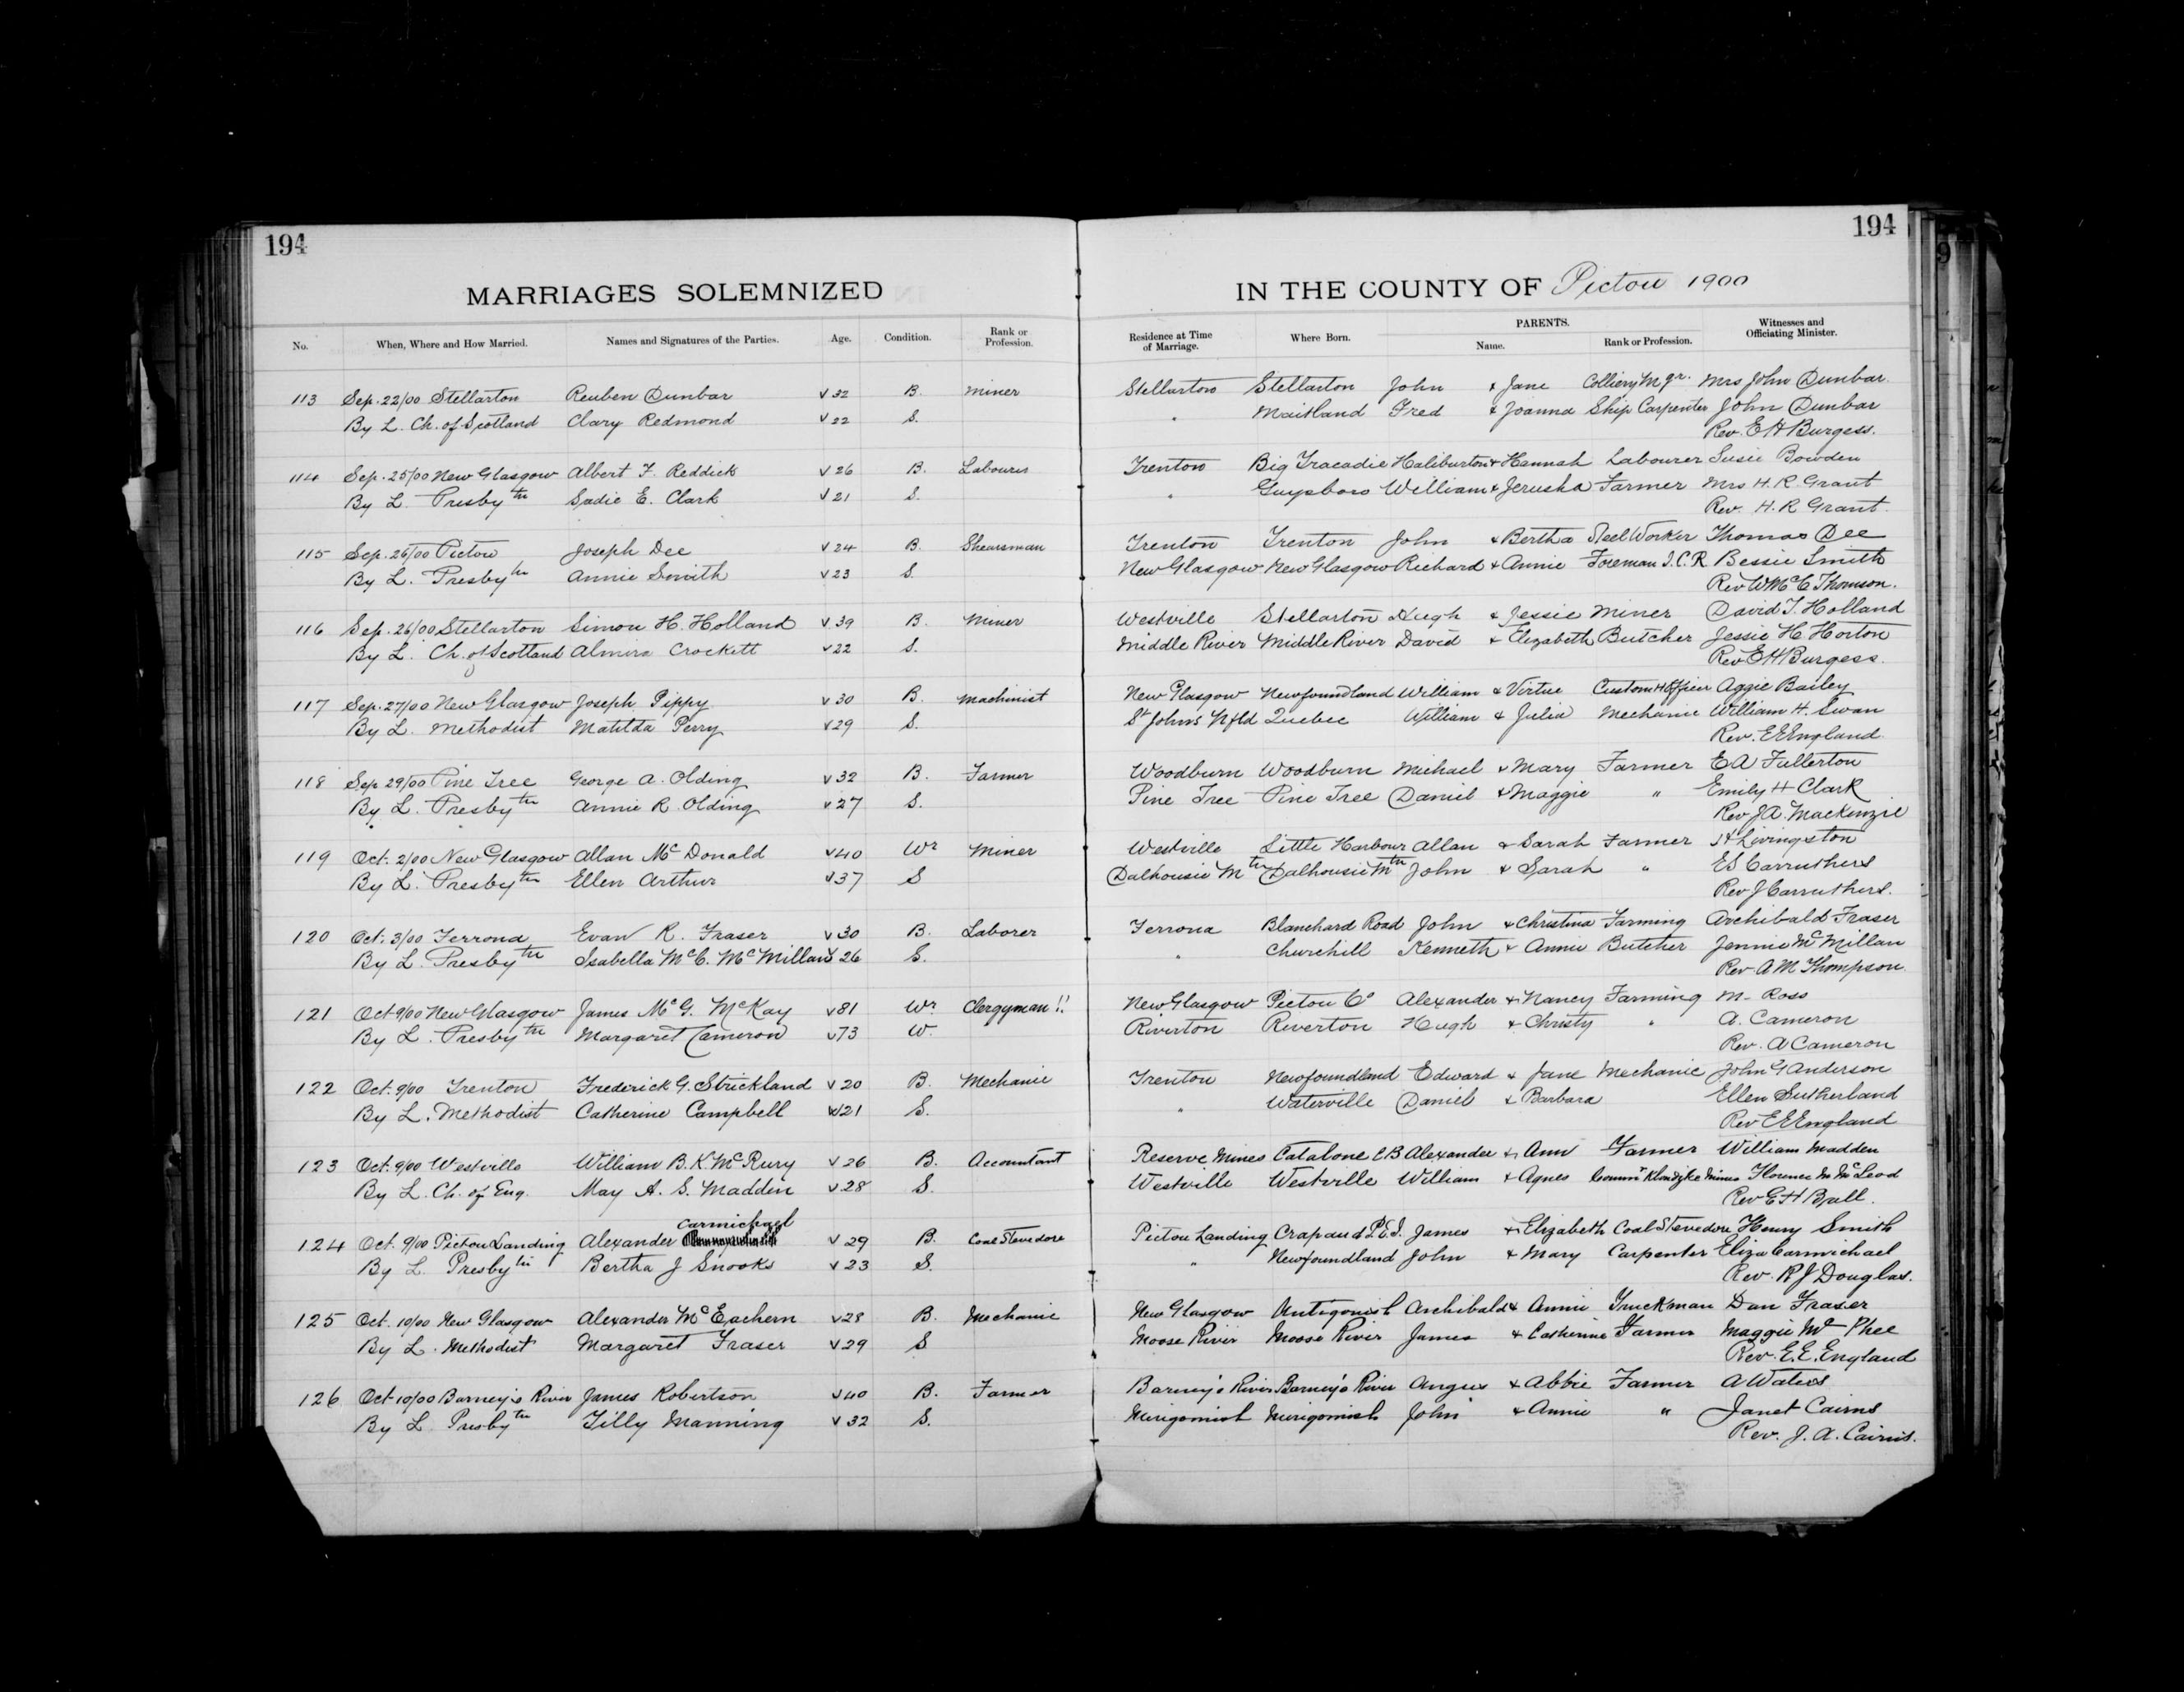 194 194
MARRIAGES SOLEMNIZED IN THE COUNTY OF Pictou 1900
No. When, Where and How Married. Names and Signatures of the Parties. Age. Condition. Rank or Profession. Residence at Time of Marriage. Where Born. PARENTS. Name. Rank or Profession. Witnesses and Officiating Minister.
113 Sep. 22/00 Stellarton Reuben Dunbar √ 32 B. Miner Stellarton Stellarton John & Jane Colliery Mgr. Mrs John Dunbar
By L. Ch. of Scotland Clary Redmond √ 22 S. " Maitland Fred & Joanna Ship Carpenter John Dunbar
Rev. E H Burgess.
114 Sep. 25/00 New Glasgow Albert F. Reddick √ 26 B. Labourer Trenton Big Tracadie Haliburton & Hannah Labourer Susie Bowden
By L. Presbytn Sadie E. Clark √ 21 S. " Guysboro William & Jerusha Farmer Mrs H. R Grant
Rev. H. R Grant
115 Sep. 26/00 Pictou Joseph Dee √ 24 B. Shearsman Trenton Trenton John & Bertha Steel Worker Thomas Dee
By L. Presbytn Annie Smith √ 23 S. New Glasgow New Glasgow Richard & Annie Foreman I.C.R Bessie Smith
Rev W McC Thomson.
116 Sep. 26/00 Stellarton Simon H. Holland √ 39 B. Miner Westville Stellarton Hugh & Jessie Miner David T. Holland
By L. Ch. of Scotland Almira Crockett √ 22 S. Middle River Middle River David & Elizabeth Butcher Jessie H Horton
Rev E H Burgess.
117 Sep. 27/00 New Glasgow Joseph Pippy √ 30 B. Machinist New Glasgow Newfoundland William & Virtue Customs Officer Aggie Bailey
By L. Methodist Matilda Perry √ 29 S. St Johns Nfld Quebec William & Julia Mechanic William H. Swan
Rev. E E England
118 Sep 29/00 Pine Tree George A. Olding √ 32 B. Farmer Woodburn Woodburn Michael & Mary Farmer E A Fullerton
By L. Presbytn Annie R. Olding √ 27 S. Pine Tree Pine Tree Daniel & Maggie " Emily H Clark
Rev J A. Mackenzie
119 Oct. 2/00 New Glasgow Allan Mc Donald √ 40 Wr Miner Westville Little Harbour Allan & Sarah Farmer H Livingston
By L. Presbytn Ellen Arthur √ 37 S Dalhousie Mtn Dalhousie Mtn John & Sarah " E S Carruthers
Rev J Carruthers.
120 Oct. 3/00 Ferrona Evan R. Fraser √ 30 B. Laborer Ferrona Blanchard Road John & Christina Farming Archibald Fraser
By L. Presbytn Isabella McC. McMillan √ 26 S. " Churchill Kenneth & Annie Butcher Jennie McMillan
Rev. A M Thompson.
121 Oct 9/00 New Glasgow James McG. McKay √ 81 Wr. Clergyman!! New Glasgow Pictou Co Alexander & Nancy Farming M- Ross
By L. Presbytn Margaret Cameron √ 73 W. Riverton Riverton Hugh & Christy " A. Cameron
Rev. A Cameron
122 Oct. 9/00 Trenton Frederick G. Strickland √ 20 B. Mechanic Trenton Newfoundland Edward & Jane Mechanic John G Anderson
By L. Methodist Catherine Campbell √ 21 S. " Waterville Daniel & Barbara Ellen Sutherland
Rev E E England
123 Oct. 9/00 Westville William B. K McRury √ 26 B. Accountant Reserve Mines Catalone C B Alexander & Ann Farmer William Madden
By L. Ch. of Eng. May A. S. Madden √ 28 S. Westville Westville William & Agnes Klondyke Mines Florence M McLeod
Rev E H Ball.
Carmichael
124 Oct. 9/00 Pictou Landing Alexander √ 29 B. Coal Stevedore Pictou Landing Crapaud P.E.I. James & Elizabeth Coal Stevedore Henry Smith
By L. Presbytn Bertha J Snooks √ 23 S. " Newfoundland John & Mary Carpenter Eliza Carmichael
Rev. R J Douglas.
125 Oct. 10/00 New Glasgow Alexander McEachern √ 28 B. Mechanic New Glasgow Antigonish Archibald & Annie Truckman Dan Fraser
By L. Methodist Margaret Fraser √ 29 S Moose River Moose River James & Catherine Farmer Maggie Mc Phee
Rev. E. E. England
126 Oct 10/00 Barney's River James Robertson √ 40 B. Farmer Barney's River Barney's River Angus & Abbie Farmer A Waters
By L. Presbytn Tilly Manning √ 32 S. Merigomish Merigomish John & Annie " Janet Cairns
Rev. J. A. Cairns.